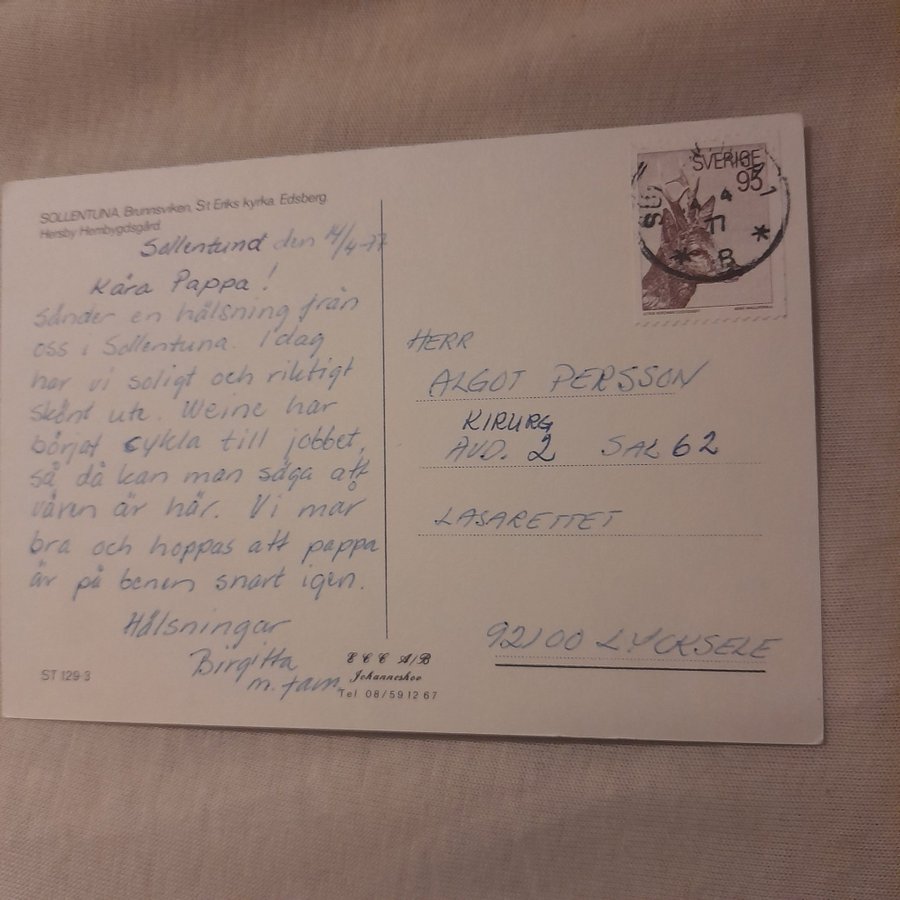 SOLLENTUNA. Brunnsviken, S:t Eriks kyrka, Edsberg
Hersby Hembygdsgård.
Sollentuna den 14/4-77
Kära Pappa!
Sänder en hälsning från
oss i Sollentuna. Idag
har vi soligt och riktigt
skönt ute. Weine har
börjat cykla till jobbet,
så då kan man säga att
våren är här. Vi mår
bra och hoppas att pappa
är på benen snart igen.
Hälsningar
Birgitta
m. fam.
ST 129-3
E C C A/B
Johanneshov
Tel 08/59 12 67
SVERIGE
95
4
77
B
HERR
ALGOT PERSSON
KIRURG
AVD. 2 SAL 62
LASARETTET
92100 LYCKSELE